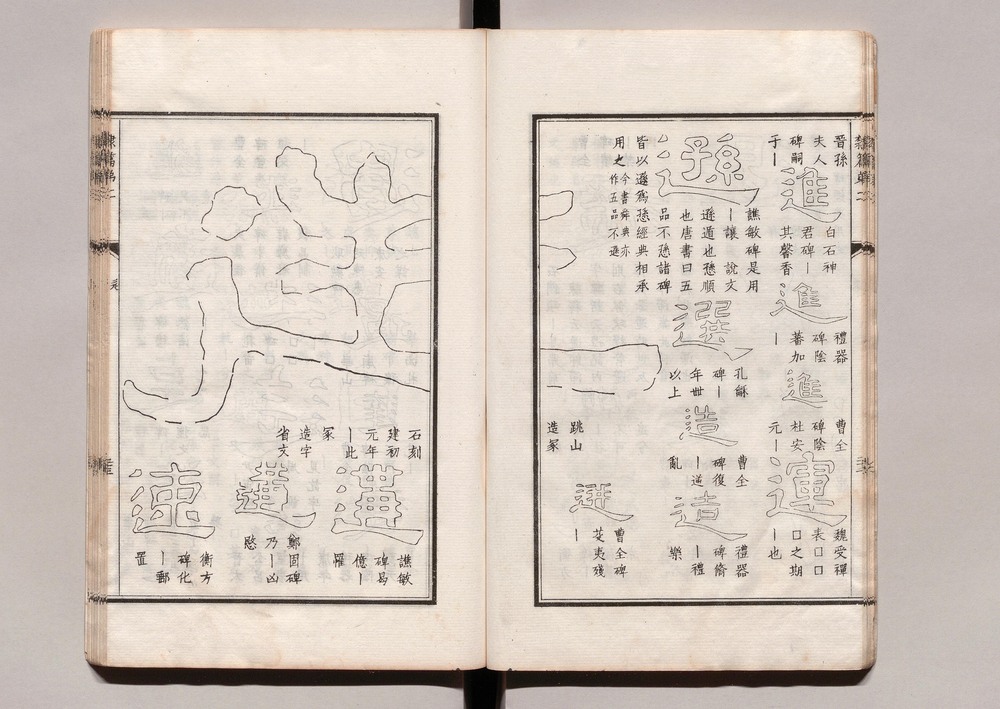 晉孫
夫人
碑嗣
于丨
進
白石神
君碑丨
其馨香
進
禮器
碑陰
蕃加
丨
進
曹全
碑陰
杜安
元丨
運
魏受禪
表囗囗
囗之期
丨也
遜
譙敏碑是用
丨讓 說文
遜遁也愻順
也唐書曰五
品不愻諸碑
皆以遜爲愻經典相承
用之今書舜典亦
作五品不遜
選
孔龢
碑丨
年卌
以上
造
曹全
碑復
丨逆
亂
造
禮器
碑脩
丨禮
樂
迸
曹全碑
芟夷殘
丨
造
跳山
造冢
石刻
建初
元年
丨此
冢
造字
省文
遘
譙敏
碑易
億丨
罹
遘
鄭固碑
乃丨凶
愍
速
衡方
碑化
丨郵
置